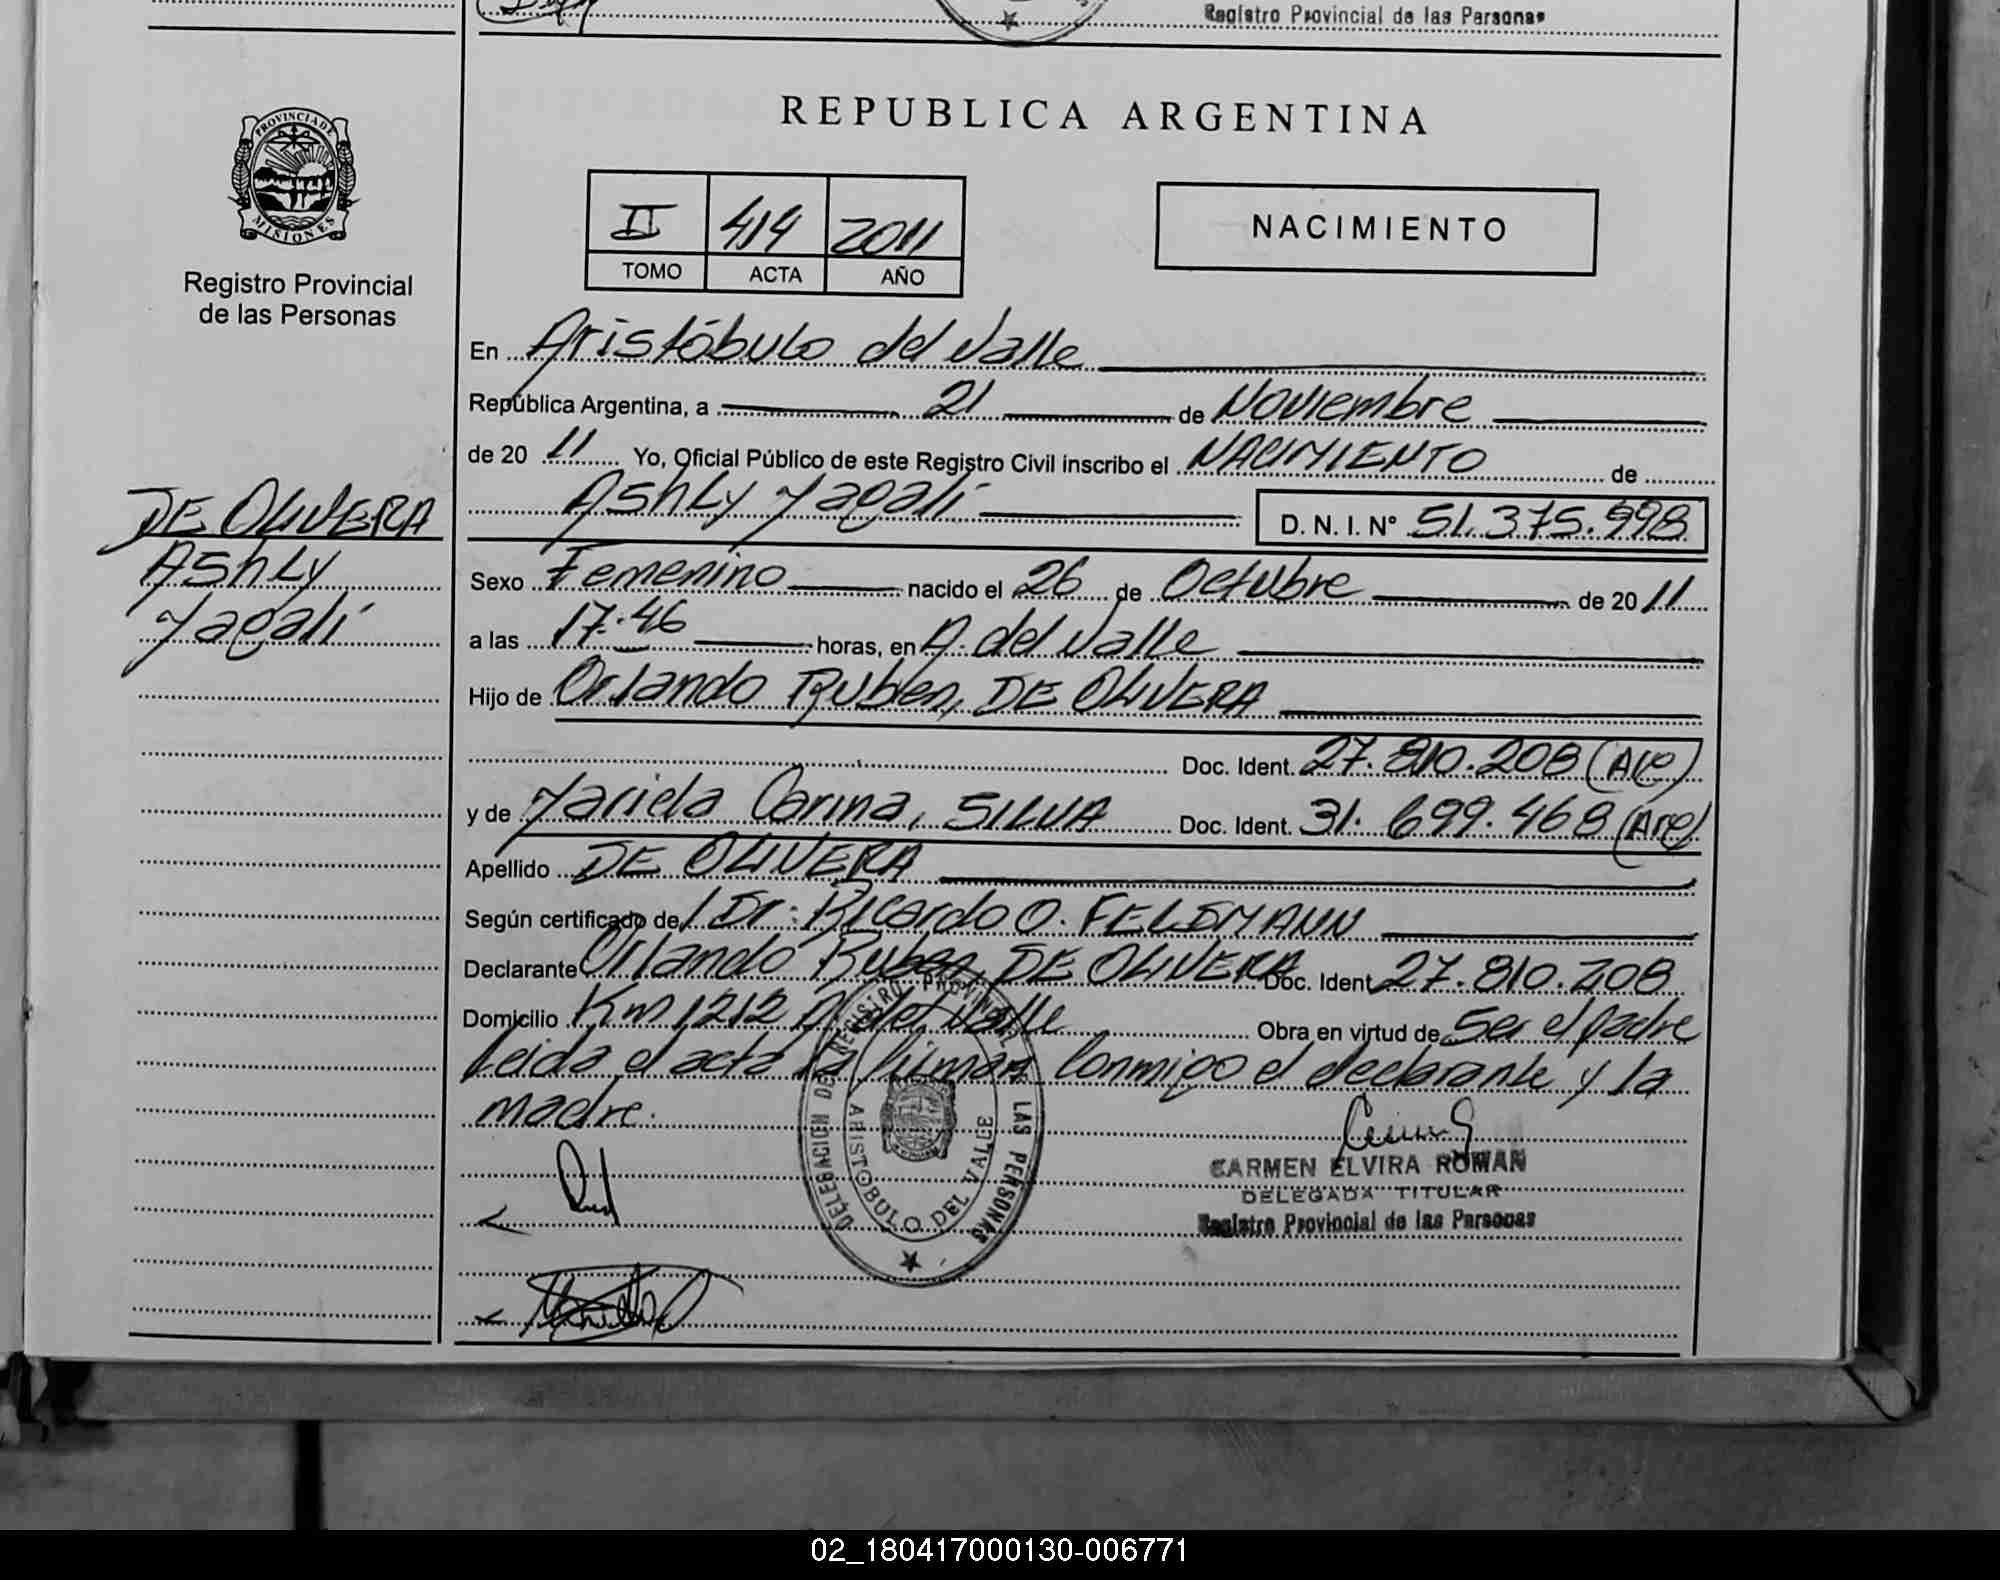 Registro Provincial de las Personas
PROVINCIA DE
MISIONES
Registro Provincial
de las Personas
REPUBLICA ARGENTINA
II 414 2011
TOMO ACTA AÑO
NACIMIENTO
En Aristóbulo del Valle
República Argentina, a 21 de Noviembre
de 20 11 Yo, Oficial Público de este Registro Civil inscribo el NACIMIENTO de
Ashly Magalí D. N. I. Nº 51.375.998
DE OLIVERA
Ashly
Magalí
Sexo Femenino nacido el 26 de Octubre de 20 11
a las 17:46 horas, en A. del Valle
Hijo de Orlando Ruben, DE OLIVERA
Doc. Ident. 27.810.208 (Arg)
y de Mariela Carina, SILVA Doc. Ident. 31.699.468 (Arg)
Apellido DE OLIVERA
Según certificado de/ Dr: Ricardo O. FELDMANN
Declarante Orlando Ruben, DE OLIVERA Doc. Ident 27.810.208
Domicilio Km 1212 A. del Valle Obra en virtud de Ser el padre
Leida el acta la firman Conmigo el declarante y la
madre.
DELEGACION DEL REGISTRO PROVINCIAL DE LAS PERSONAS
ARISTOBULO DEL VALLE
CARMEN ELVIRA ROMAN
DELEGADA TITULAR
Registro Provincial de las Personas
02_180417000130-006771